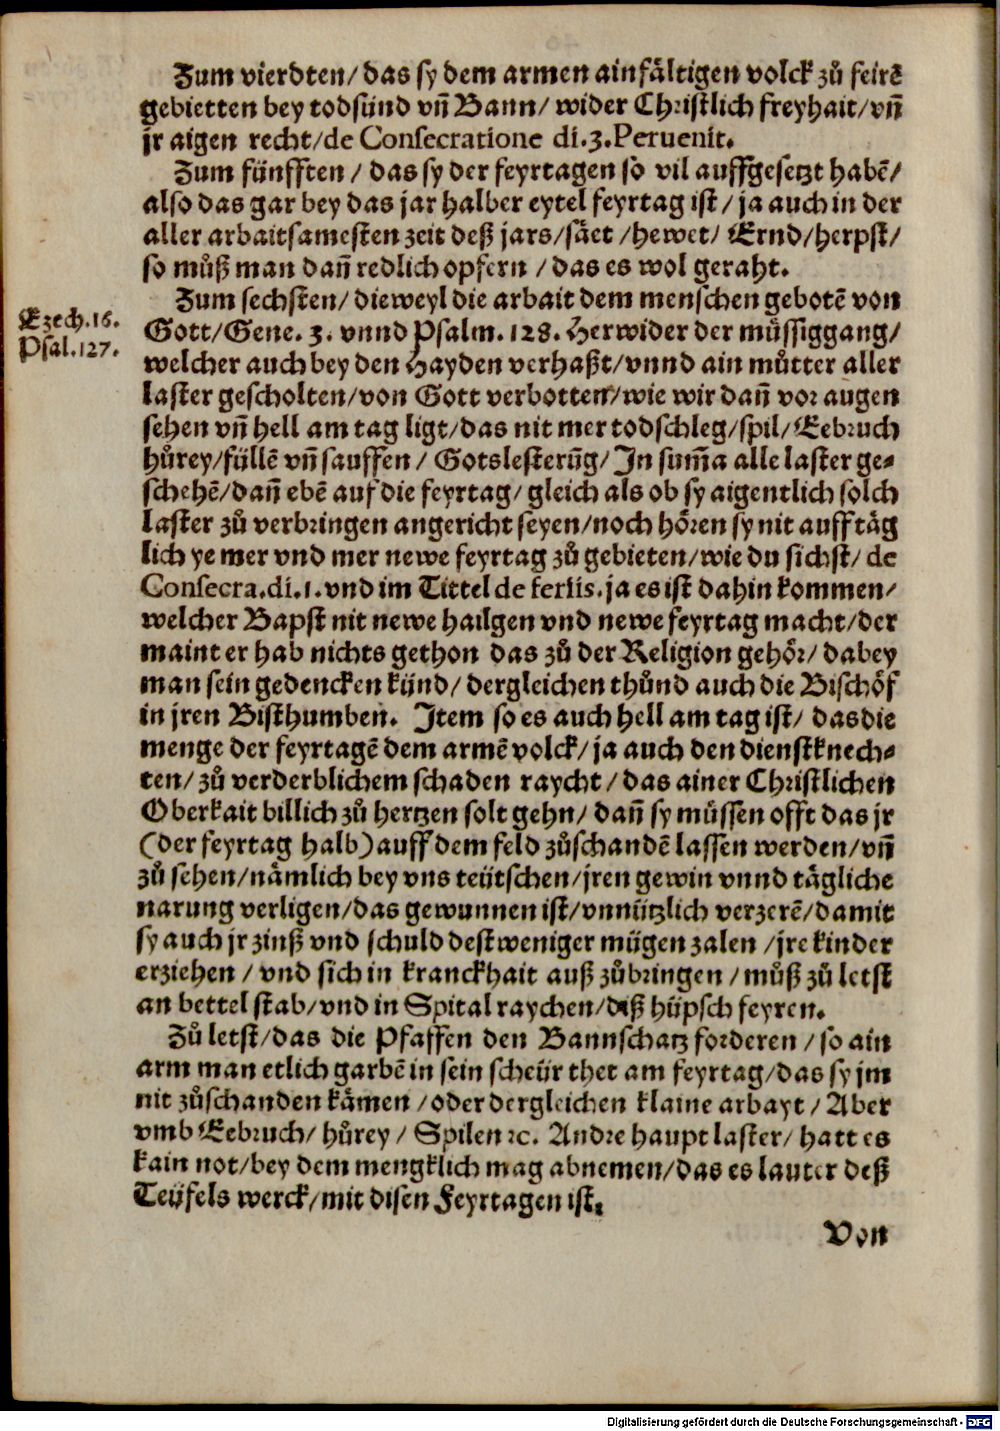 Zum vierdten/ das sy dem armen ainfältigen volck zů feirē
gebietten bey todsünd vñ Bann/ wider Christlich freyhait/ vñ
jr aigen recht/ de Consecratione di.3.Peruenit.
Zum fünfften/ das sy der feyrtagen so vil auffgesetzt habē/
also das gar bey das jar halber eytel feyrtag ist/ ja auch in der
aller arbaitsamesten zeit deß jars/ säet/ hewet/ Ernd/ herpst/
so můß man dañ redlich opfern/ das es wol geraht.
Zum sechsten/ dieweyl die arbait dem menschen gebotē von
Ezech.16.
Gott/ Gene. 3. vnnd Psalm. 128. Herwider der müssiggang/
Psal.127.
welcher auch bey den Hayden verhaßt/ vnnd ain můtter aller
laster gescholten/ von Gott verbotten/ wie wir dañ vor augen
sehen vñ hell am tag ligt/ das nit mer todschleg/ spil/ Eebruch
hůrey/ füllē vñ sauffen/ Gotslesterūg/ In sum̃a alle laster ge⸗
schehē/ dañ ebē auf die feyrtag/ gleich als ob sy aigentlich solch
laster zů verbringen angericht seyen/ noch hören sy nit auff täg
lich ye mer vnd mer newe feyrtag zů gebieten/ wie du sichst/ de
Consecra.di.1. vnd im Tittel de ferijs. ja es ist dahin kommen/
welcher Bapst nit newe hailgen vnd newe feyrtag macht/ der
maint er hab nichts gethon das zů der Religion gehör/ dabey
man sein gedencken künd/ dergleichen thůnd auch die Bischöf
in jren Bisthumben. Item so es auch hell am tag ist/ das die
menge der feyrtagē dem armē volck/ ja auch den dienstknech⸗
ten/ zů verderblichem schaden raycht/ das ainer Christlichen
Oberkait billich zů hertzen solt gehn/ dañ sy müssen offt das jr
(der feyrtag halb) auff dem feld zůschandē lassen werden/ vñ
zů sehen/ nämlich bey vns teütschen/ jren gewin vnnd tägliche
narung verligen/ das gewunnen ist/ vnnützlich verzerē/ damit
sy auch jr zinß vnd schuld dest weniger mügen zalen/ jre kinder
erziehen/ vnd sich in kranckhait auß zůbringen/ můß zů letst
an bettel stab/ vnd in Spital raychen/ diß hüpsch feyren.
Zů letst/ das die Pfaffen den Bannschatz forderen/ so ain
arm man etlich garbē in sein scheür thet am feyrtag/ das sy jm
nit zůschanden kämen/ oder dergleichen klaine arbayt/ Aber
vmb Eebruch/ hůrey/ Spilen ꝛc. Andre haupt laster/ hatt es
kain not/ bey dem mengklich mag abnemen/ das es lauter deß
Teüfels werck/ mit disen Feyrtagen ist.
Von
Digitalisierung gefördert durch die Deutsche Forschungsgemeinschaft - DFG